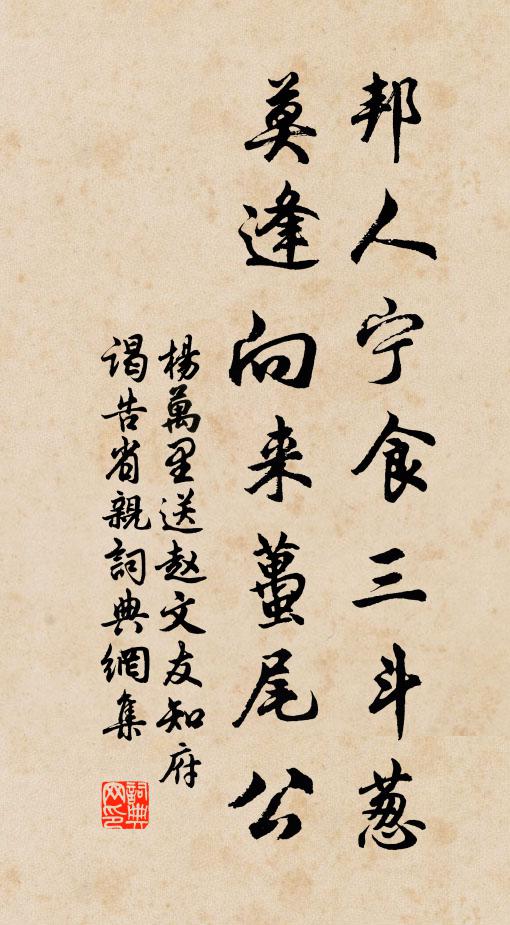 邦人宁食三斗葱
莫逢向来虿尾公
楊萬里送赵文友知府
谒告省親詞典網集
詞典网印